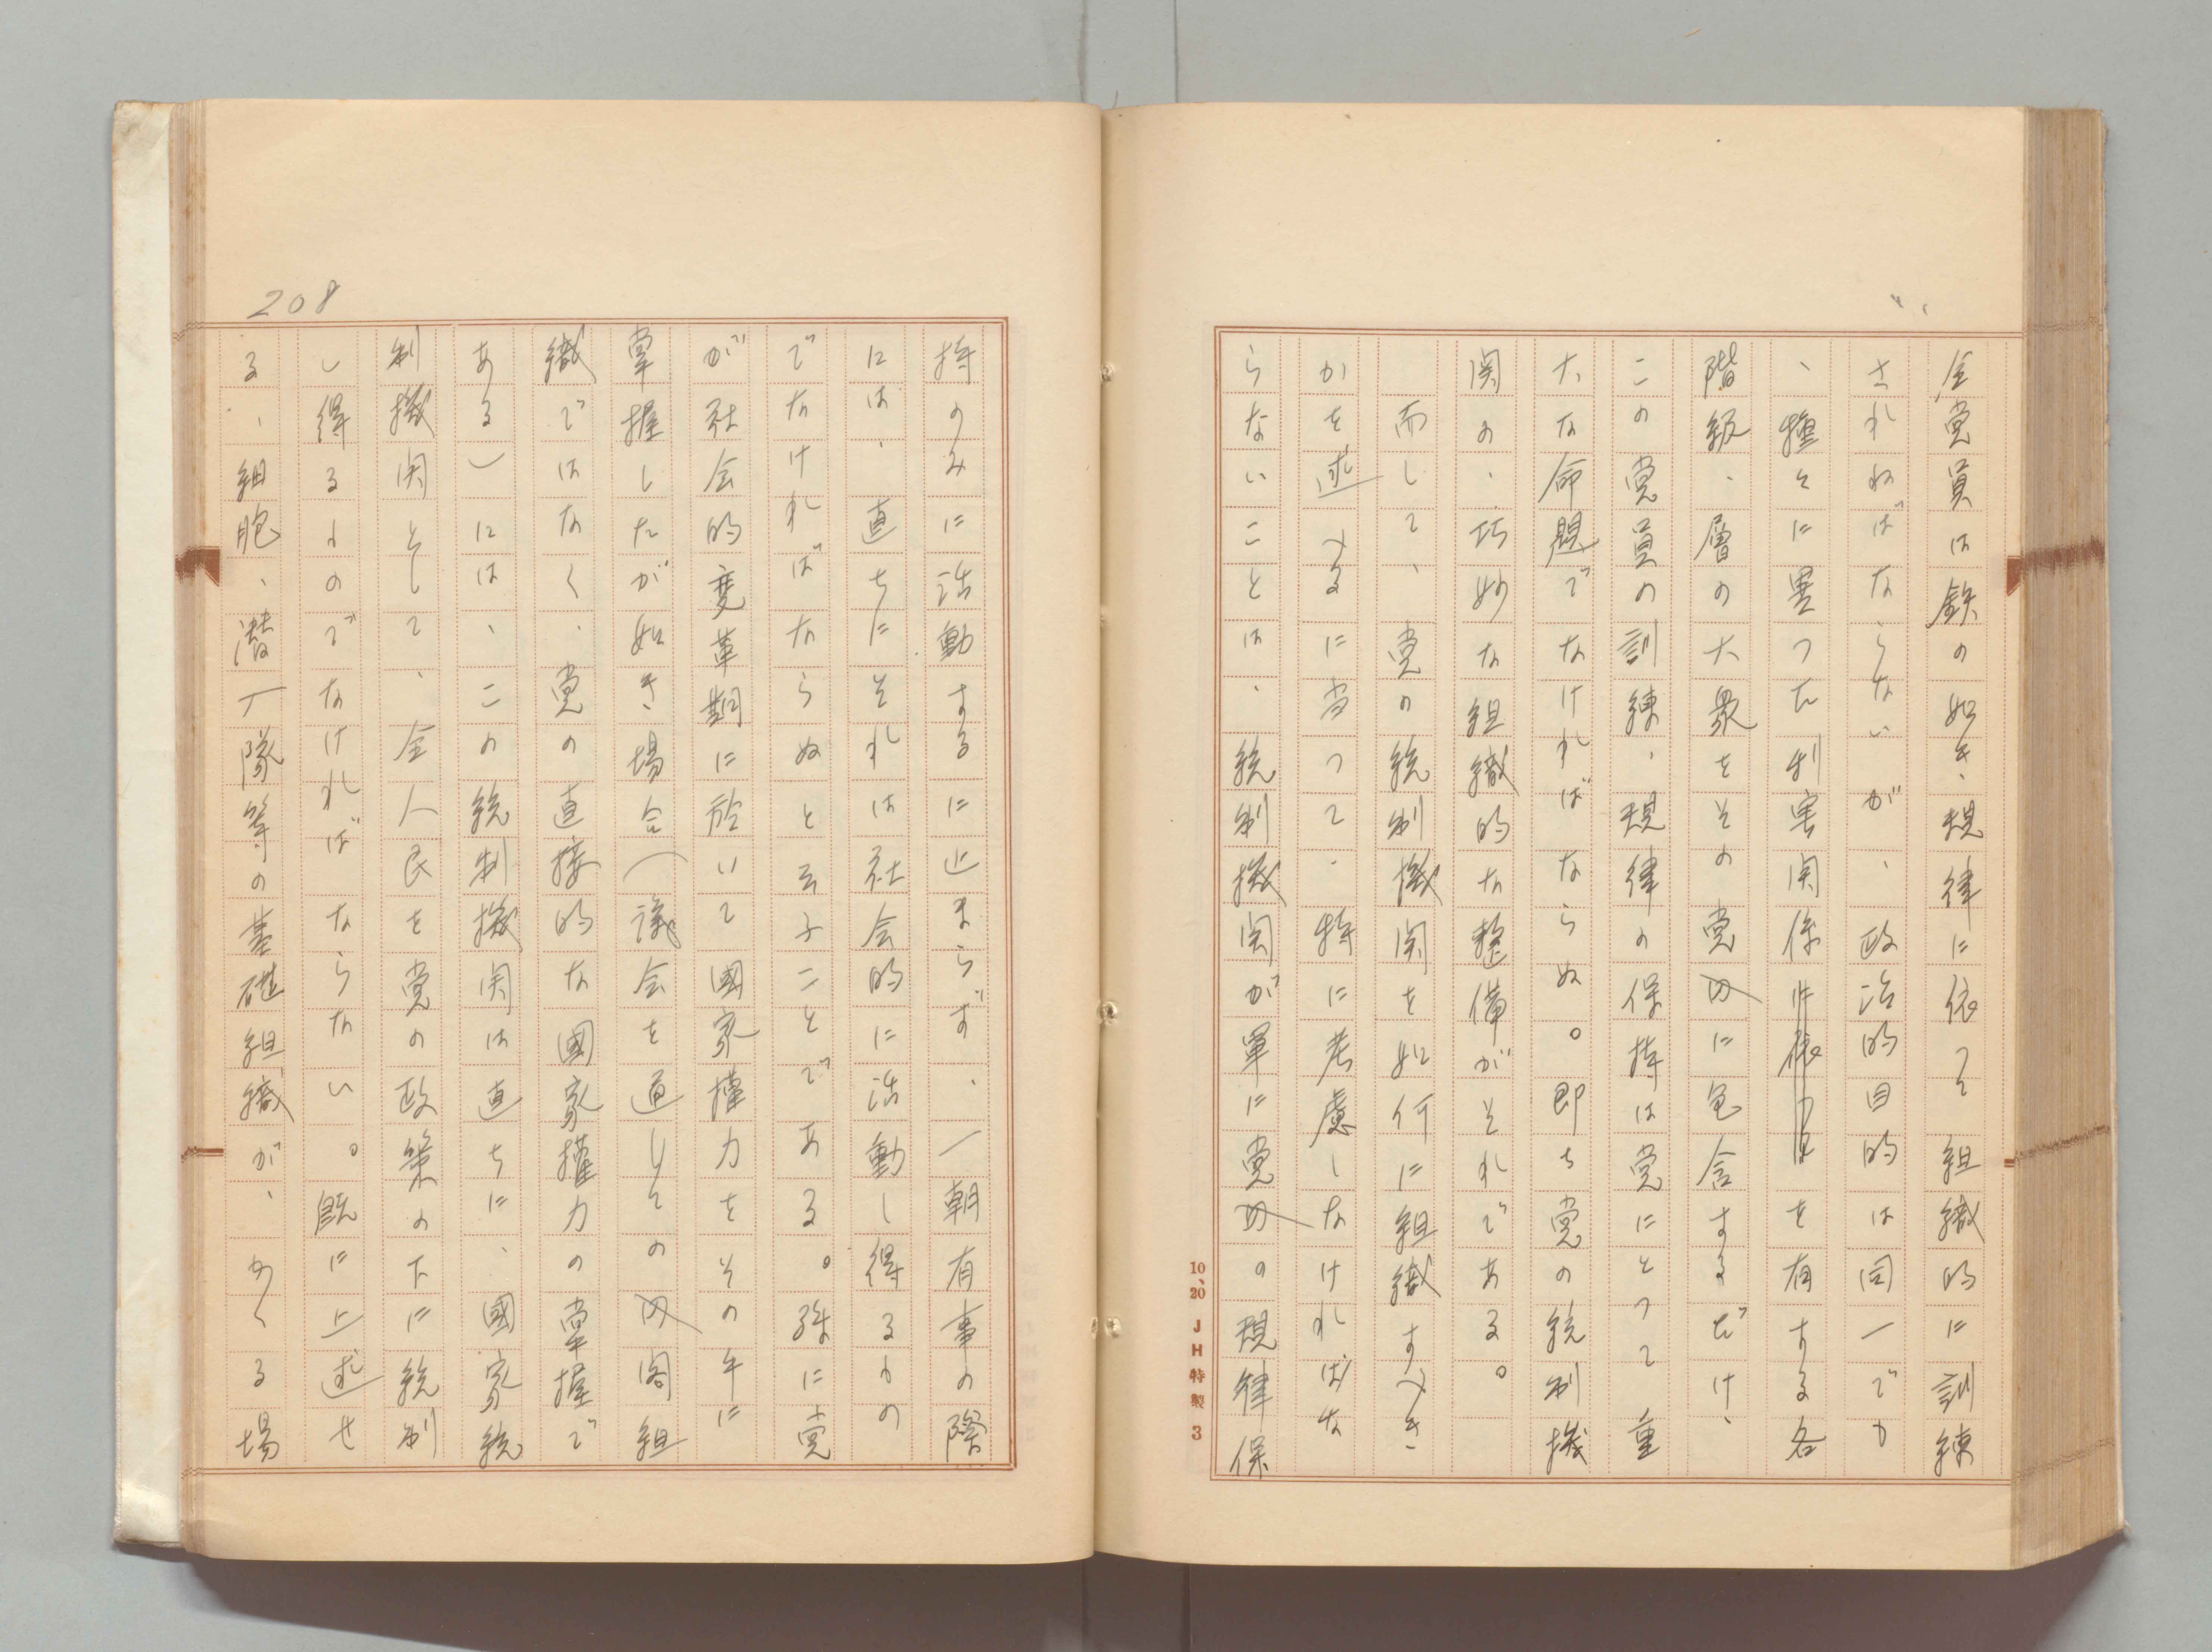 全党員は鉄の如き、規律に依つて組織的に訓練
されねばならないが、政治的目的は同一でも
、種々に異つた利害関係を有する各
階級、層の大衆をその党内に包含するだけ、
この党員の訓練、規律の保持は党にとつて重
大な命題でなければならぬ。即ち党の統制機
関の、巧妙な組織的な整備がそれである。
而して、党の統制機関を如何に組織すべき
かを述べるに当つて、特に考慮しなければな
らないことは、統制機関が単に党内の規律保
10、20 JH特製 3
208
持のみに活動するに止まらず、一朝有事の際
には、直ちにそれは社会的に活動し得るもの
でなければならぬと云ふことである。殊に党
が社会的変革期に於いて國家権力をその手に
掌握したが如き場合(議会を通じての内閣組
織ではなく、党の直接的な國家権力の掌握で
ある)には、この統制機関は直ちに、國家統
制機関として、全人民を党の政策の下に統制
し得るものでなければならない。既に上述せ
る、細胞、潜一隊等の基礎組織が、かくる場